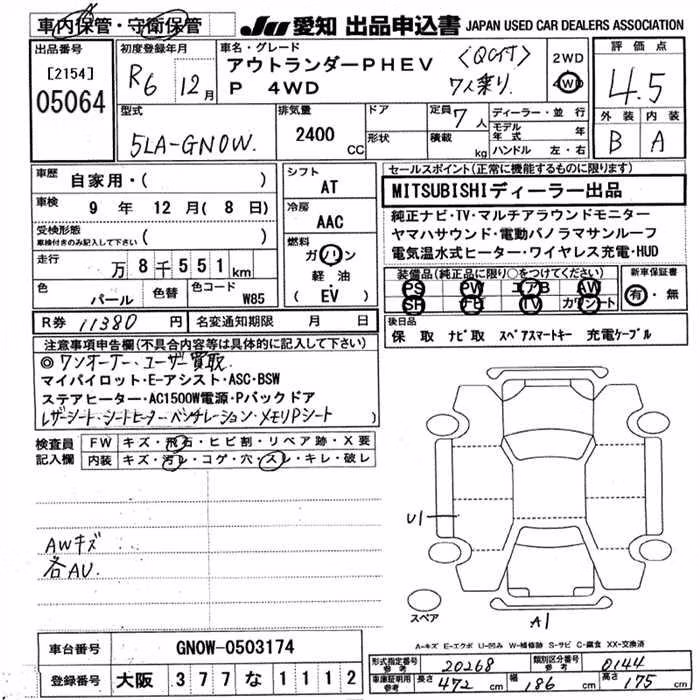 車内保管・守衛保管
JU 愛知 出品申込書 JAPAN USED CAR DEALERS ASSOCIATION
出品番号
[2154]
05064
初度登録年月
R6 12月
車名・グレード
アウトランダーPHEV
P 4WD
7人乗り
2WD
4WD
評価点
4.5
外装 内装
B A
型式
5LA-GN0W.
排気量
2400 CC
ドア
形状
定員 7人
積載 kg
ディーラー・並行
モデル年式 年
ハンドル 左・右
車歴
自家用・( )
車検
9年 12月(8日)
受検形態
車検付きのみ記入して下さい ( )
走行
万8千551km
色
パール
色替
色コード
W85
シフト
AT
冷房
AAC
燃料
ガソリン
軽油
(EV)
セールスポイント(正常に機能するものに限ります)
MITSUBISHIディーラー出品
純正ナビ・TV・マルチアラウンドモニター
ヤマハサウンド・電動パノラマサンルーフ
電気温水式ヒーター・ワイヤレス充電・HUD
装備品(純正品に限り○をつけてください)
PS PW エアB AW
SR ナビ TV カワシート
新車保証書
有・無
R券 11380円 名変通知期限 月 日
後日品
保 取 ナビ取 スペアスマートキー 充電ケーブル
注意事項申告欄(不具合内容等は具体的に記入して下さい)
◎ワンオーナー、ユーザー買取
マイパイロット・E-アシスト・ASC・BSW
ステアヒーター・AC1500W電源・Pバックドア
レザーシート・シートヒーター・ベンチレーション・メモリPシート
検査員記入欄
FW キズ・飛石・ヒビ割・リペア跡・X要
内装 キズ・汚レ・コゲ・穴・スレ・キレ・破レ
AWキズ
各AU.
U1
スペア
A1
A-キズ E-エクボ U-凹み W-補修跡 S-サビ C-腐食 XX-交換済
車台番号 GN0W-0503174
登録番号 大阪 377 な 1112
形式指定番号 参考 20268 類別区分番号 参考 0144
車庫証明用 参考 長さ 472cm 幅 186cm 高さ 175cm